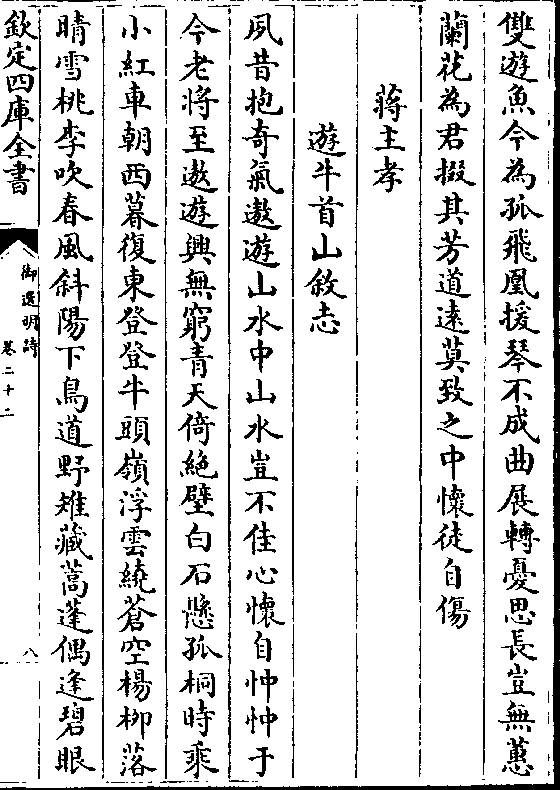 雙遊魚今為孤飛凰援琴不成曲展轉憂思長豈無蕙
蘭花為君掇其芳道遠莫致之中懷徒自傷
蔣主孝
遊牛首山敘志
夙昔抱奇氣遨遊山水中山水豈不佳心懷自忡忡于
今老將至遨遊興無窮青天倚絶壁白石懸孤桐時乘
小紅車朝西暮復東登登牛頭嶺浮雲繞蒼空楊柳落
晴雪桃李吹春風斜陽下鳥道野雉藏蒿蓬偶逢碧眼
欽定四庫全書
御選明詩
卷二十二
八